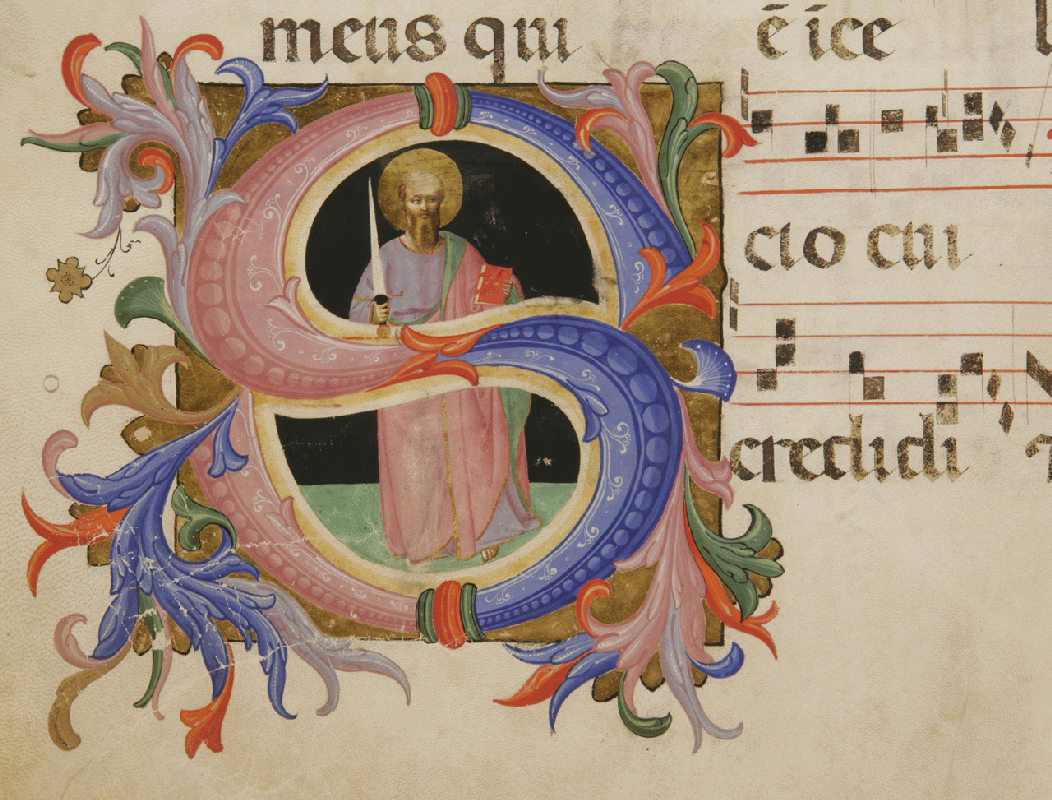 meus qui ē ice
Scio cui
credidi